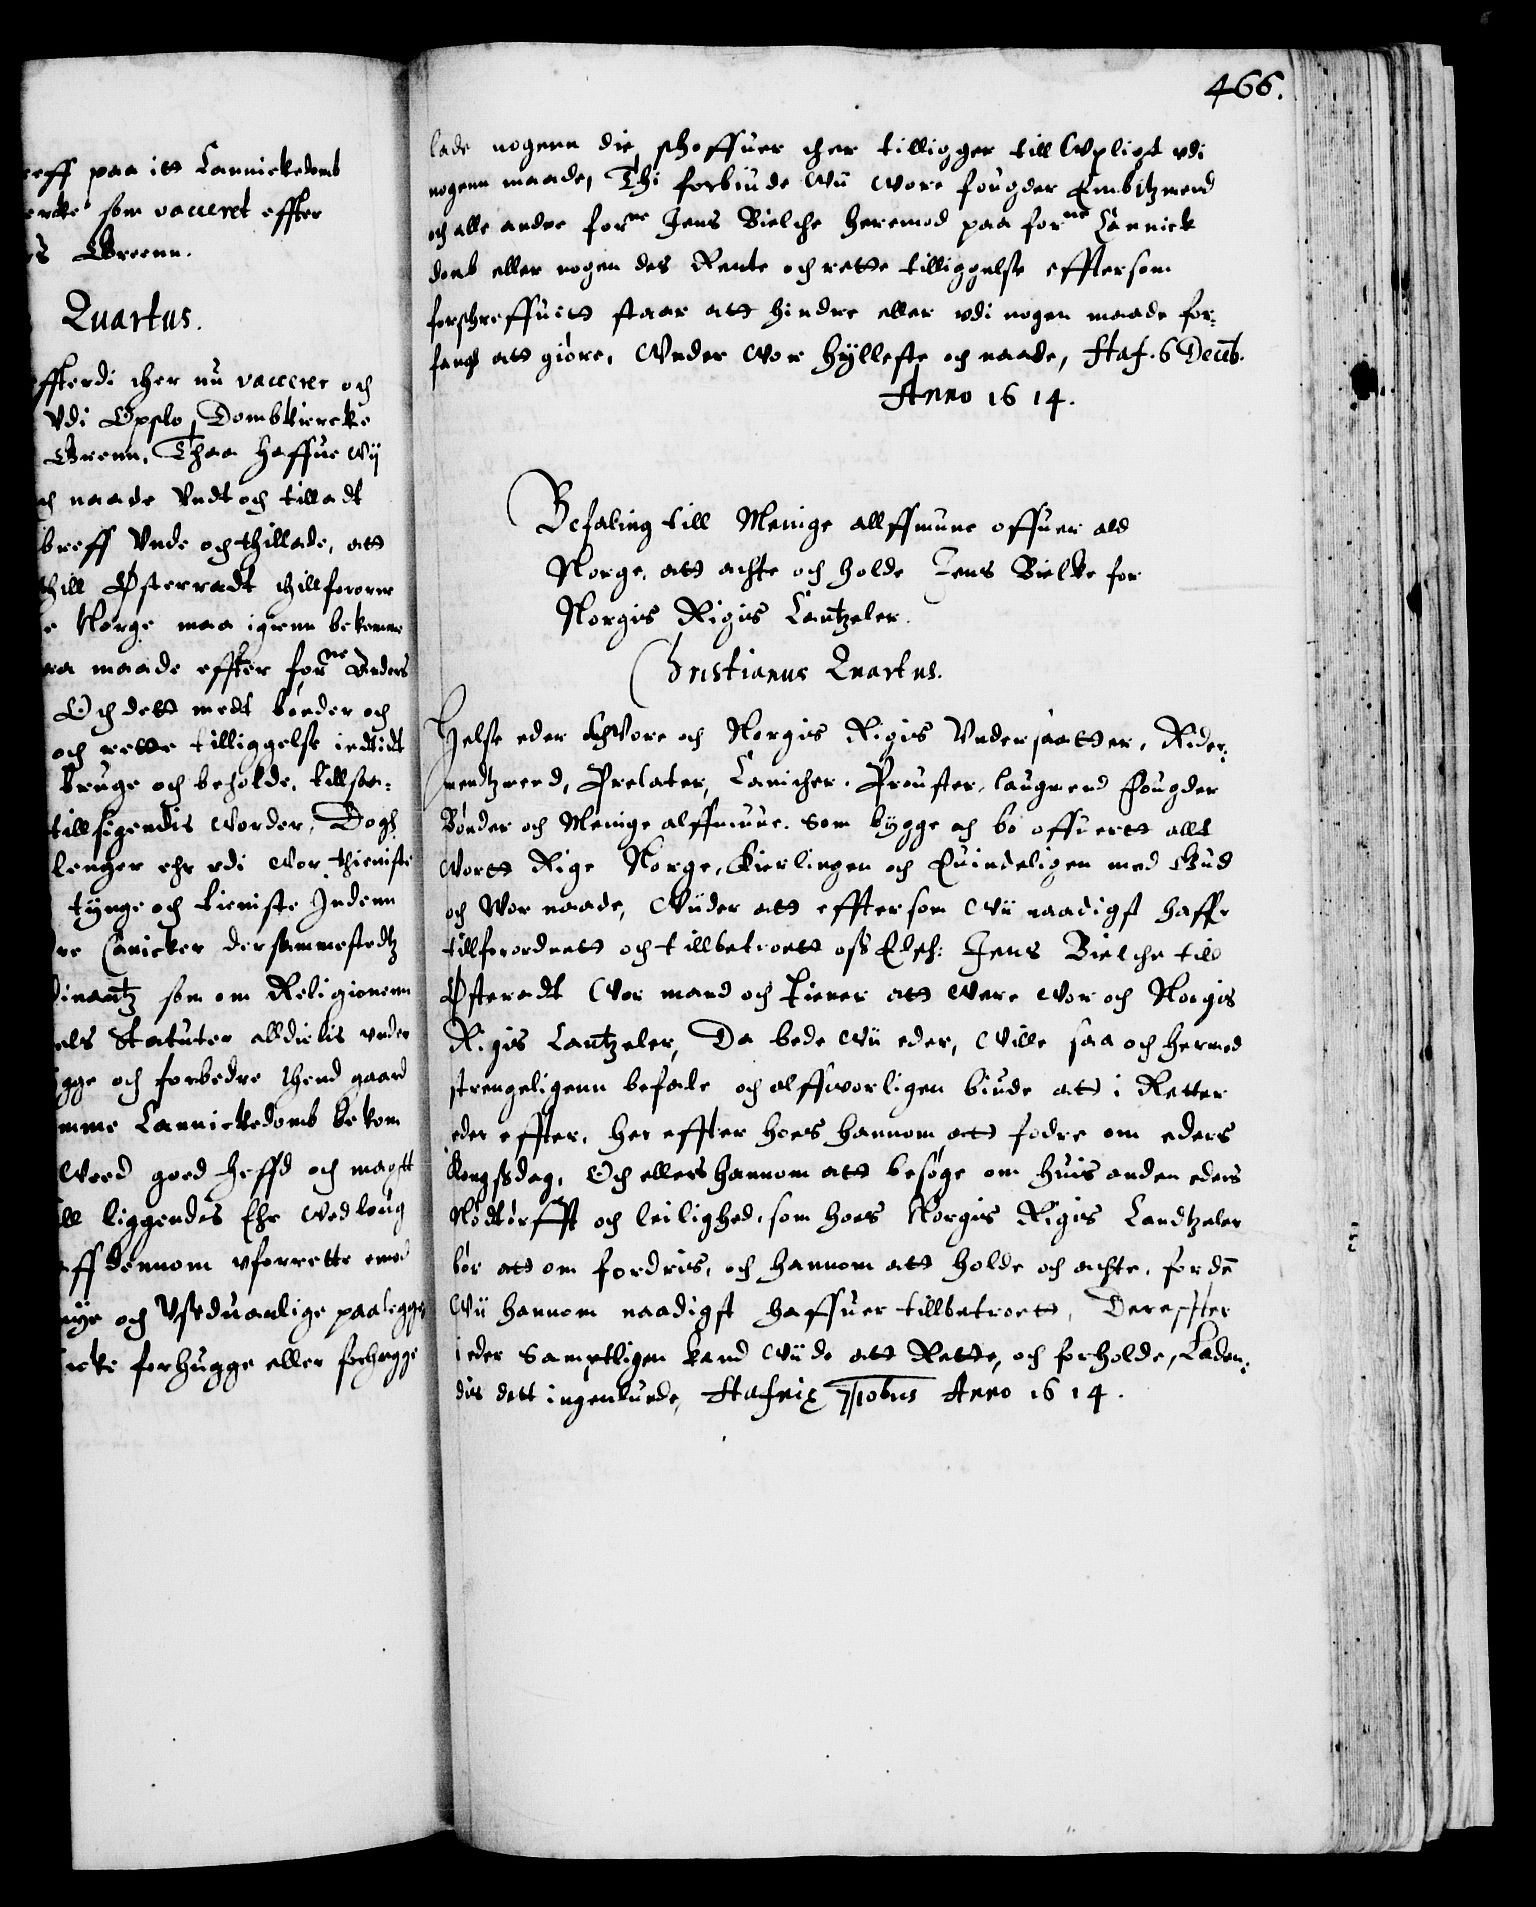 reff paa itt Cannickedomb
ercke som vacceret effter
s Greenn.
Quartus.
effterdi eher nu vaccerer och
vdi Opslo Dombkiercke
Grenn, Thaa haffue wij
och naade Vndt och tilladt
breff Vnde och thillade, att
thill Østerradt thillfororne
e Norge maa igienn bekomme
aa maade effter forne Anders
Och dett medt bønder och
och rette tilliggelse indtidt
bruge och beholde, tillsaa-
tillsigendis worder, Dogh
lenger ehr vdi wor thieniste
tynge och tieniste Indenn
re Canicker dersammestedtz
dinantz som om Religionenn
els Statuter alldielis vnder
gge och forbedre thend gaard
mme Cannickedomb bekom
Woed goed heffd och magtt
ll liggendes Ehr wed loug
ff dennom vforrette emod
nye och Vseduanlige paalegger
icke forhugge eller forhugge
466.
lade nogenn die schoffuer eher tilligger till Wpligt vdi
nogenn maade, Thi forbiude Wii wore fougder Embitzmend
och alle andre forne Jens Bielche heremod paa forne Cannick
domb eller nogen des Rente och rette tilliggelse effttersom
forschreffuitt staar att hindre eller vdi nogen maade for-
fang att giøre, Vnder wor hylleste och naade, Haf. 6 Decēb.
Anno 1614.
Befaling till Menige allffmune offuer ald
Norge, att achte och holde Jens Bielke for
Norgis Rigis Cantzeler.
Christianus Quartus.
Helse eder Wore och Norgis Rigis Vndersaatter, Rider-
mendtzmend, Prelater, Canicher, Prouster, laugmend Fougder
Bønder och Menige alffmuue, som bygge och bo offuertt allt
wortt Rige Norge, Kierlingen och Euindeligen med Gud
och Wor naade, Wiider att efftersom Wii naadigst haffr
tillforordnett och tillbetroett oss Elsch: Jens Bielche till
Østeradt Wor mand och Tiener att were wor och Norgis
Rigis Cantzeler, Da bede Wii eder, Wille saa och hermed
strengeligenn befale och alffuorligen biude att i Retter
eder effter, her effter hoes hannom att fodre om eders
Kongssdag, Och ellers hannom att besøge om huis anden eders
Nødtørfft och leilighed, som hoes Norgis Rigis Candtzeler
bør att om fordris, och hannom att holde och achte, for dē
Wii hannom naadigst haffuer tillbetroett, Dereffter
i eder samptligen kand Wiide att Rette, och forholde, Laden-
dis dett ingenlunde, Hafniæ 7 Decbris Anno 1614.